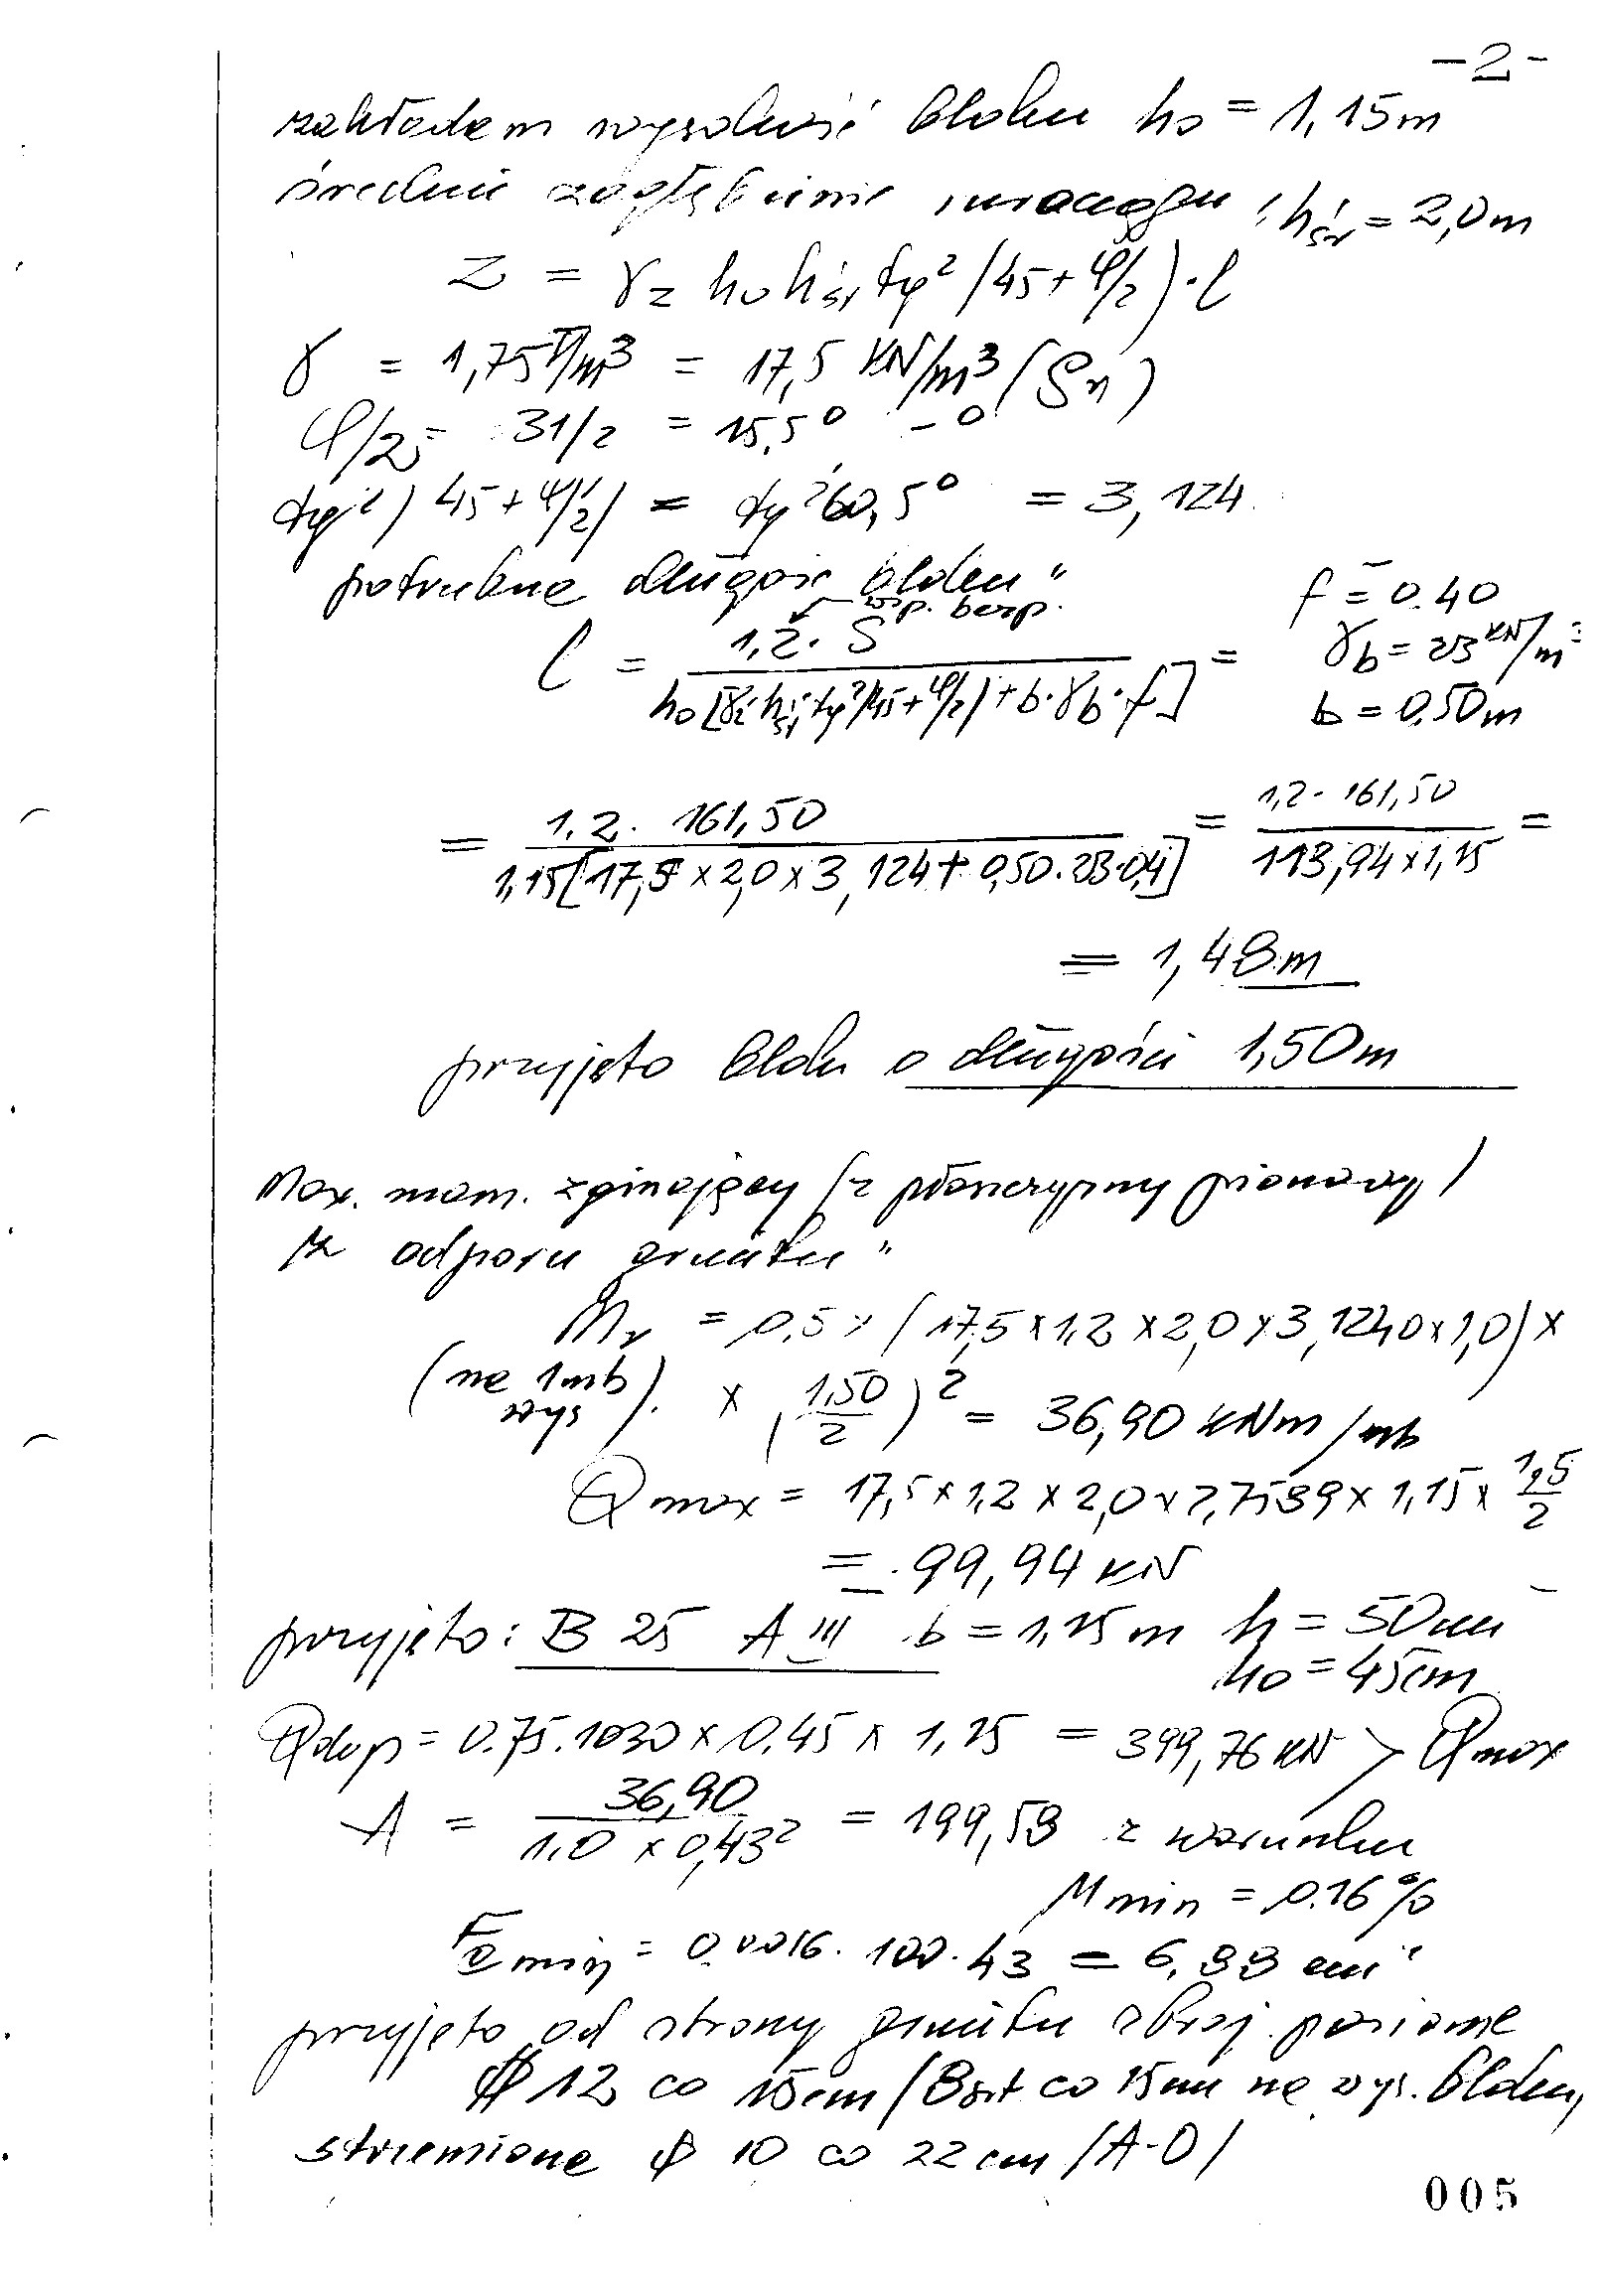 -2-
zakładam wysokość bloku ho = 1,15m
średnie zagłębienie rurociągu: hśr = 2,0m
Z = γz ho hśr tg² (45+φ/2)·l
γ = 1,75T/m³ = 17,5 KN/m³ (Sn)
φ/2 = 31/2 = 15,5°
tg² (45+φ/2) = tg²60,5° = 3,124
potrzebna długość bloku"
wsp. bezp.
f = 0.40
l = 1,2·S / ho[γz·hśr·tg²(45+φ/2)+b·γb·f] =
γb = 23 KN/m³
b = 0,50m
= 1.2. 161,50 / 1,15[17,5x2,0x3,124+0,50.23.0,4] = 1,2. 161,50 / 113,94x1,15 =
= 1,48m
przyjęto blok o długości 1,50m
Max. mom. zginający (z płaszczyzny pionowej)
z odporu gruntu"
Mr = 0.5 x (17,5x1,2x2,0x3,1240x1,0)x
(na 1mb wys). x (1,50/2)² = 36,90 kNm/mb
Qmax = 17,5x1,2x2,0x2,7589x1,15x 1,5/2
= 99,94 kN
przyjęto: B 25 A III b = 1,15m h = 50cm
ho = 45cm
Qdop = 0.75.1030x0.45x1,15 = 399,76 kN > Qmax
A = 36,90 / 1.0 x 0,43² = 199,59 z warunku
μmin = 0.16%
Fa min = 0.0016. 100. 43 = 6,88 cm²
przyjęto od strony gruntu zbroj. poziome
φ 12 co 15cm (8szt co 15cm na wys. bloku,
strzemiona φ 10 co 22 cm (A-0)
005